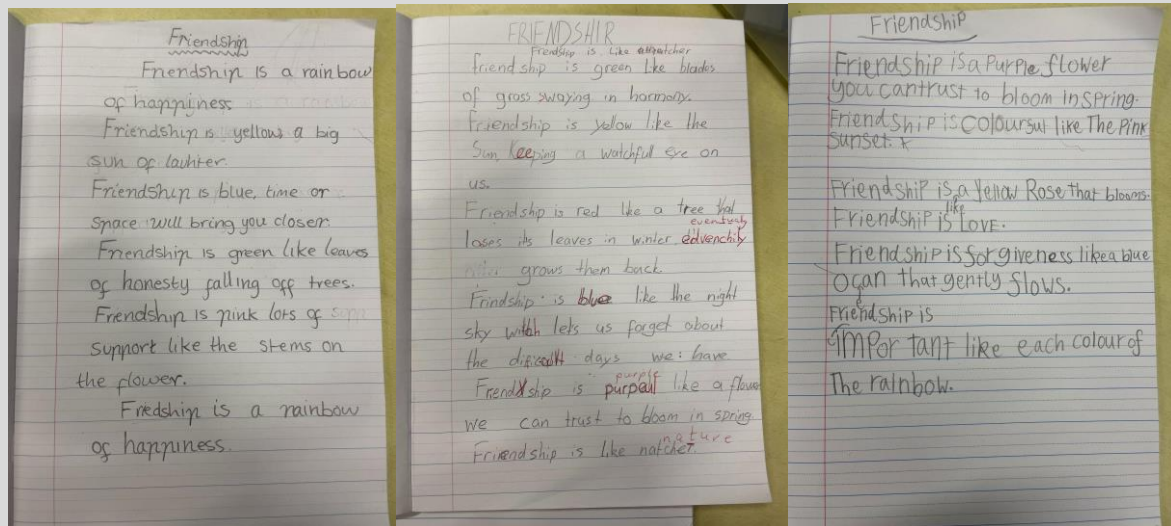 Friendship
Friendship is a rainbow
of happiness
Friendship is yellow a big
sun of lauhter.
Friendship is blue, time or
space will bring you closer.
Friendship is green like leaves
of honesty falling off trees.
Friendship is pink lots of
support like the stems on
the flower.
Friedship is a rainbow
of happiness.
FRIENDSHIP
Friendship is like
friendship is green like blades
of grass swaying in harmony.
Friendship is yellow like the
Sun, keeping a watchful eye on
us.
Friendship is red like a tree that
eventually
loses its leaves in winter edvenchily
grows them back
Frindship is blue like the night
sky witch lets us forget about
the difficult days we have
purple
Friendship is purpeul like a flower
we can trust to bloom in spring
nature
Friendship is like natcher.
Friendship
Friendship is a Purple flower
you can trust to bloom in spring.
Friendship is coloursul like The Pink
sunset.
Friendship is a Yellow Rose that blooms.
like
Friendship is LOVE.
Friendship is forgiveness like a blue
ocan that gently flows.
Friendship is
impor tant like each colour of
The rainbow.